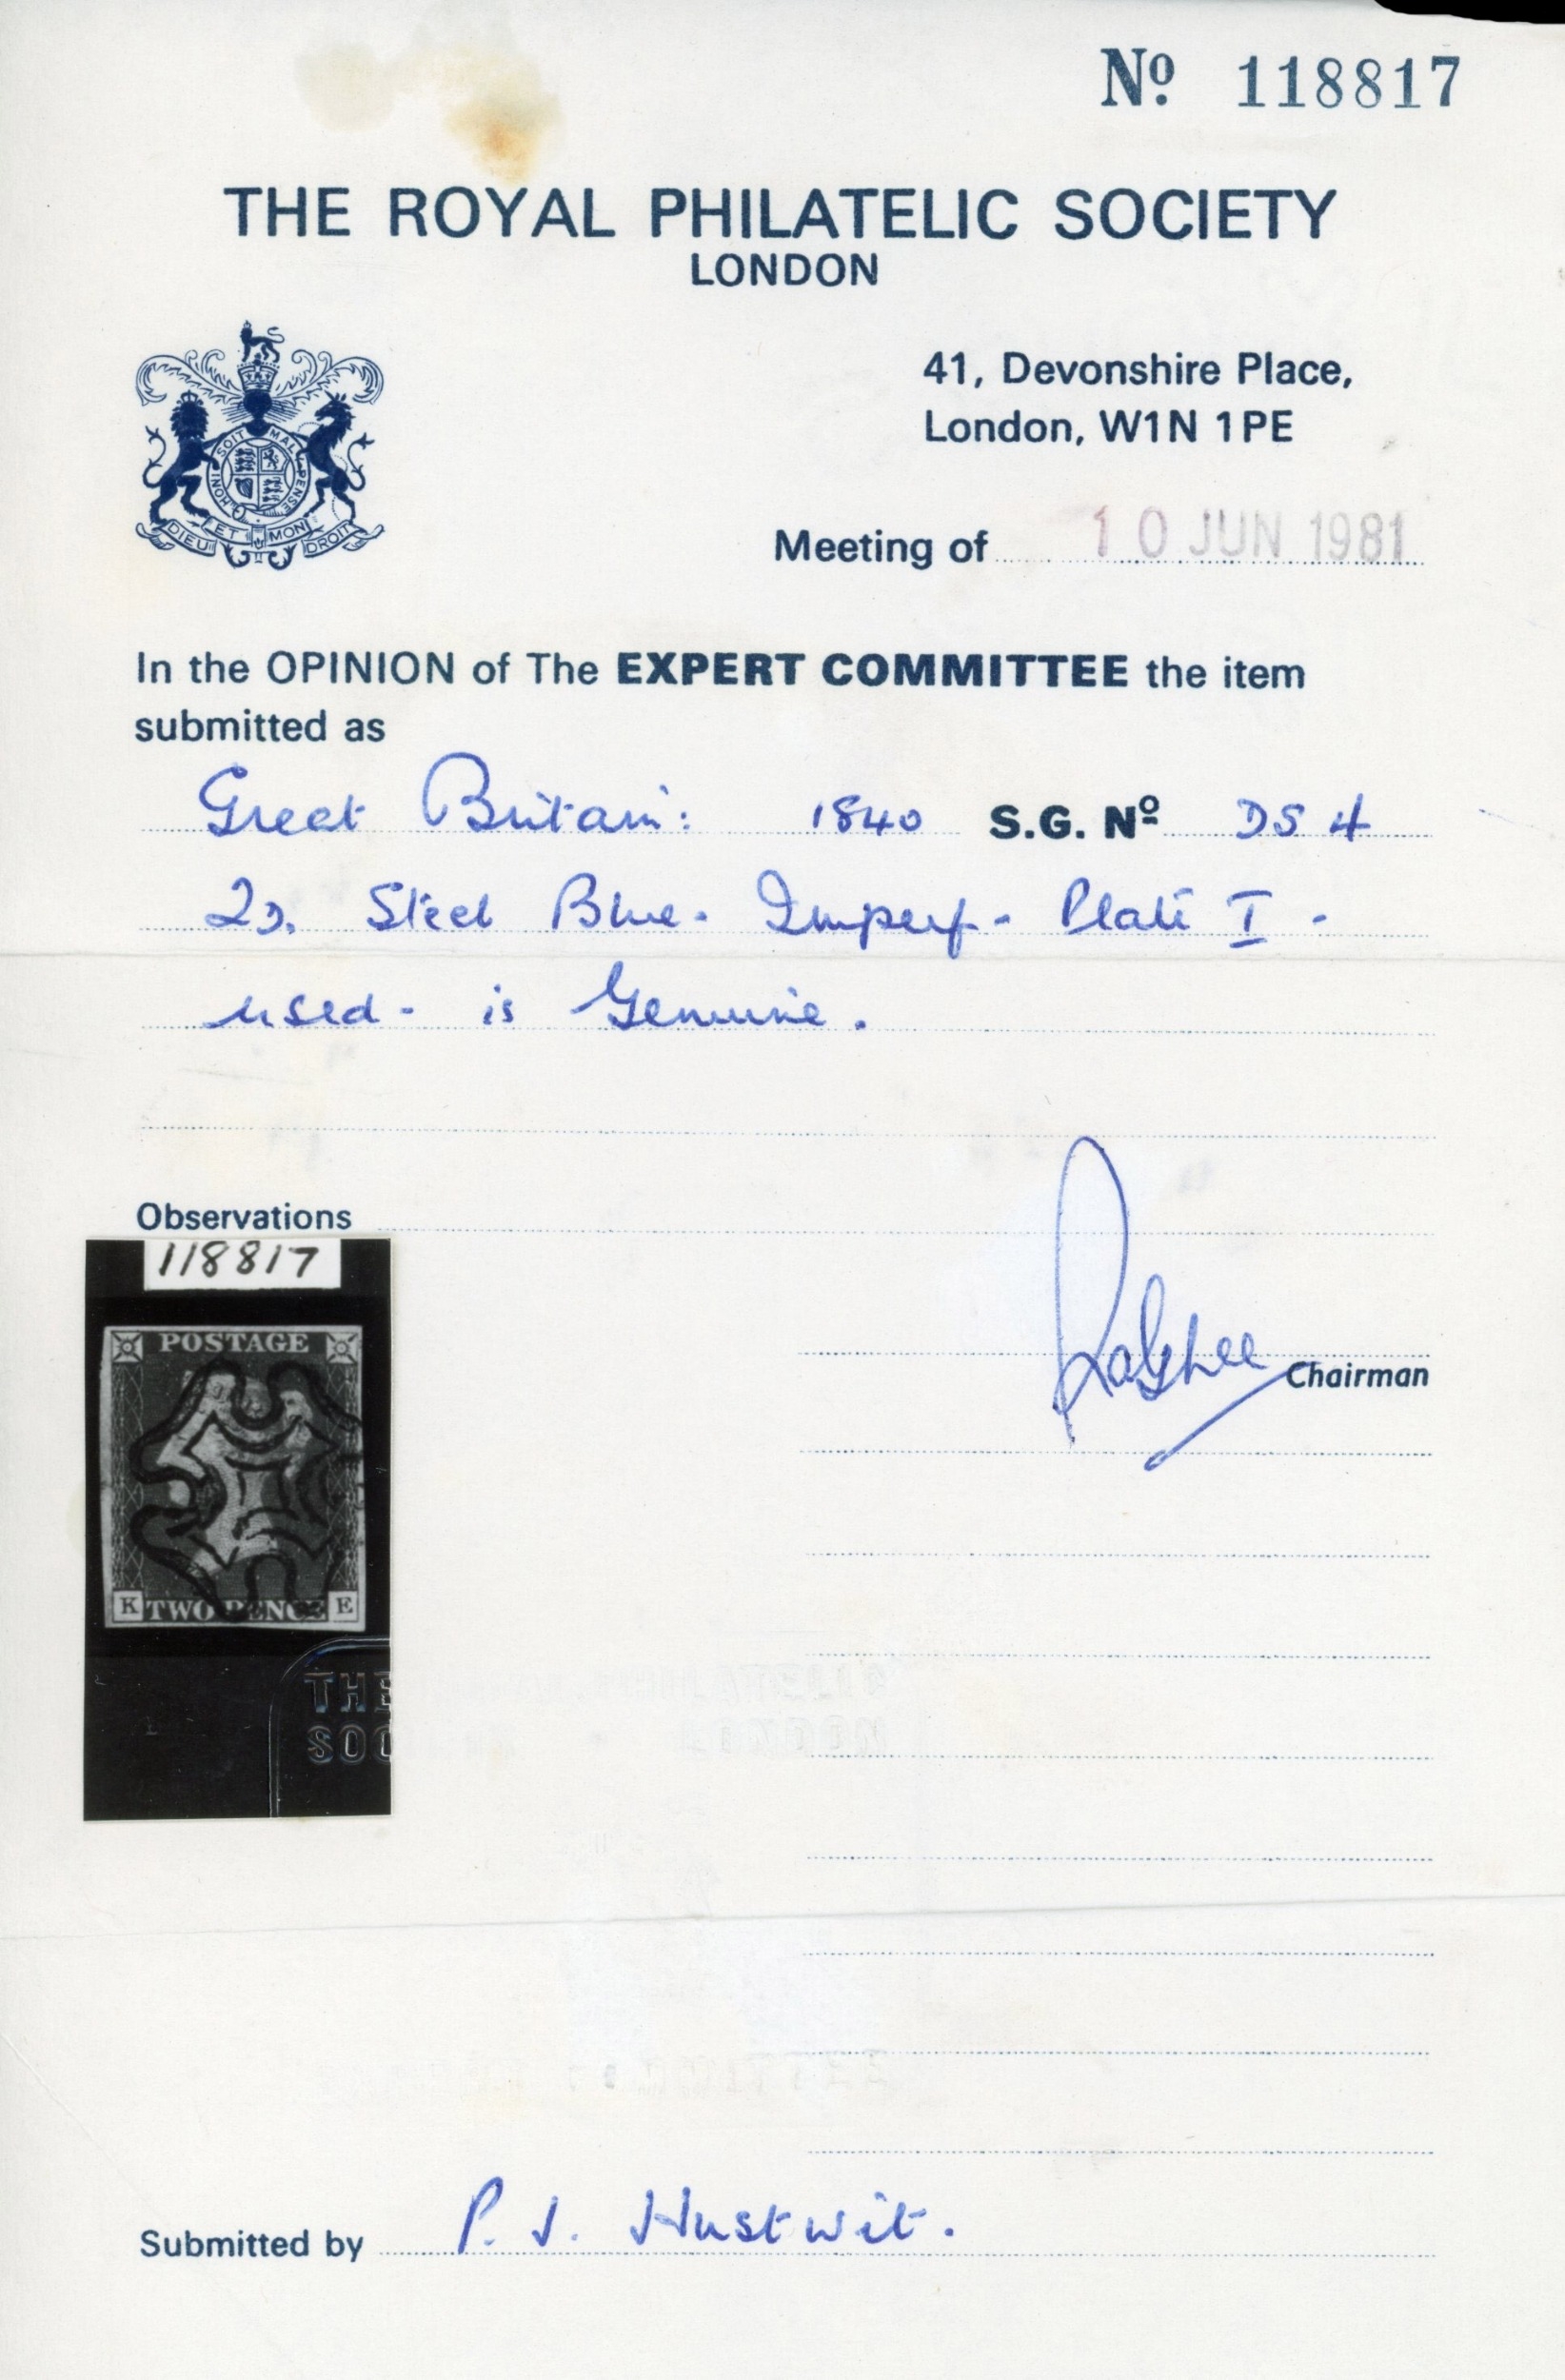 Nº 118817
THE ROYAL PHILATELIC SOCIETY
LONDON
41, Devonshire Place,
London, W1N 1PE
SOIT MAL Y PENSE HONI
DIEU ET MON DROIT
Meeting of 10 JUN 1981
In the OPINION of The EXPERT COMMITTEE the item
submitted as
Great Britain: 1840 S.G. Nº DS 4
2D. Steel Blue. Imperf- Plate I -
used- is Genuine.
Observations
118817
POSTAGE
K TWO PENCE E
THE
SOC
Chairman
Submitted by P. J. Hustwit.